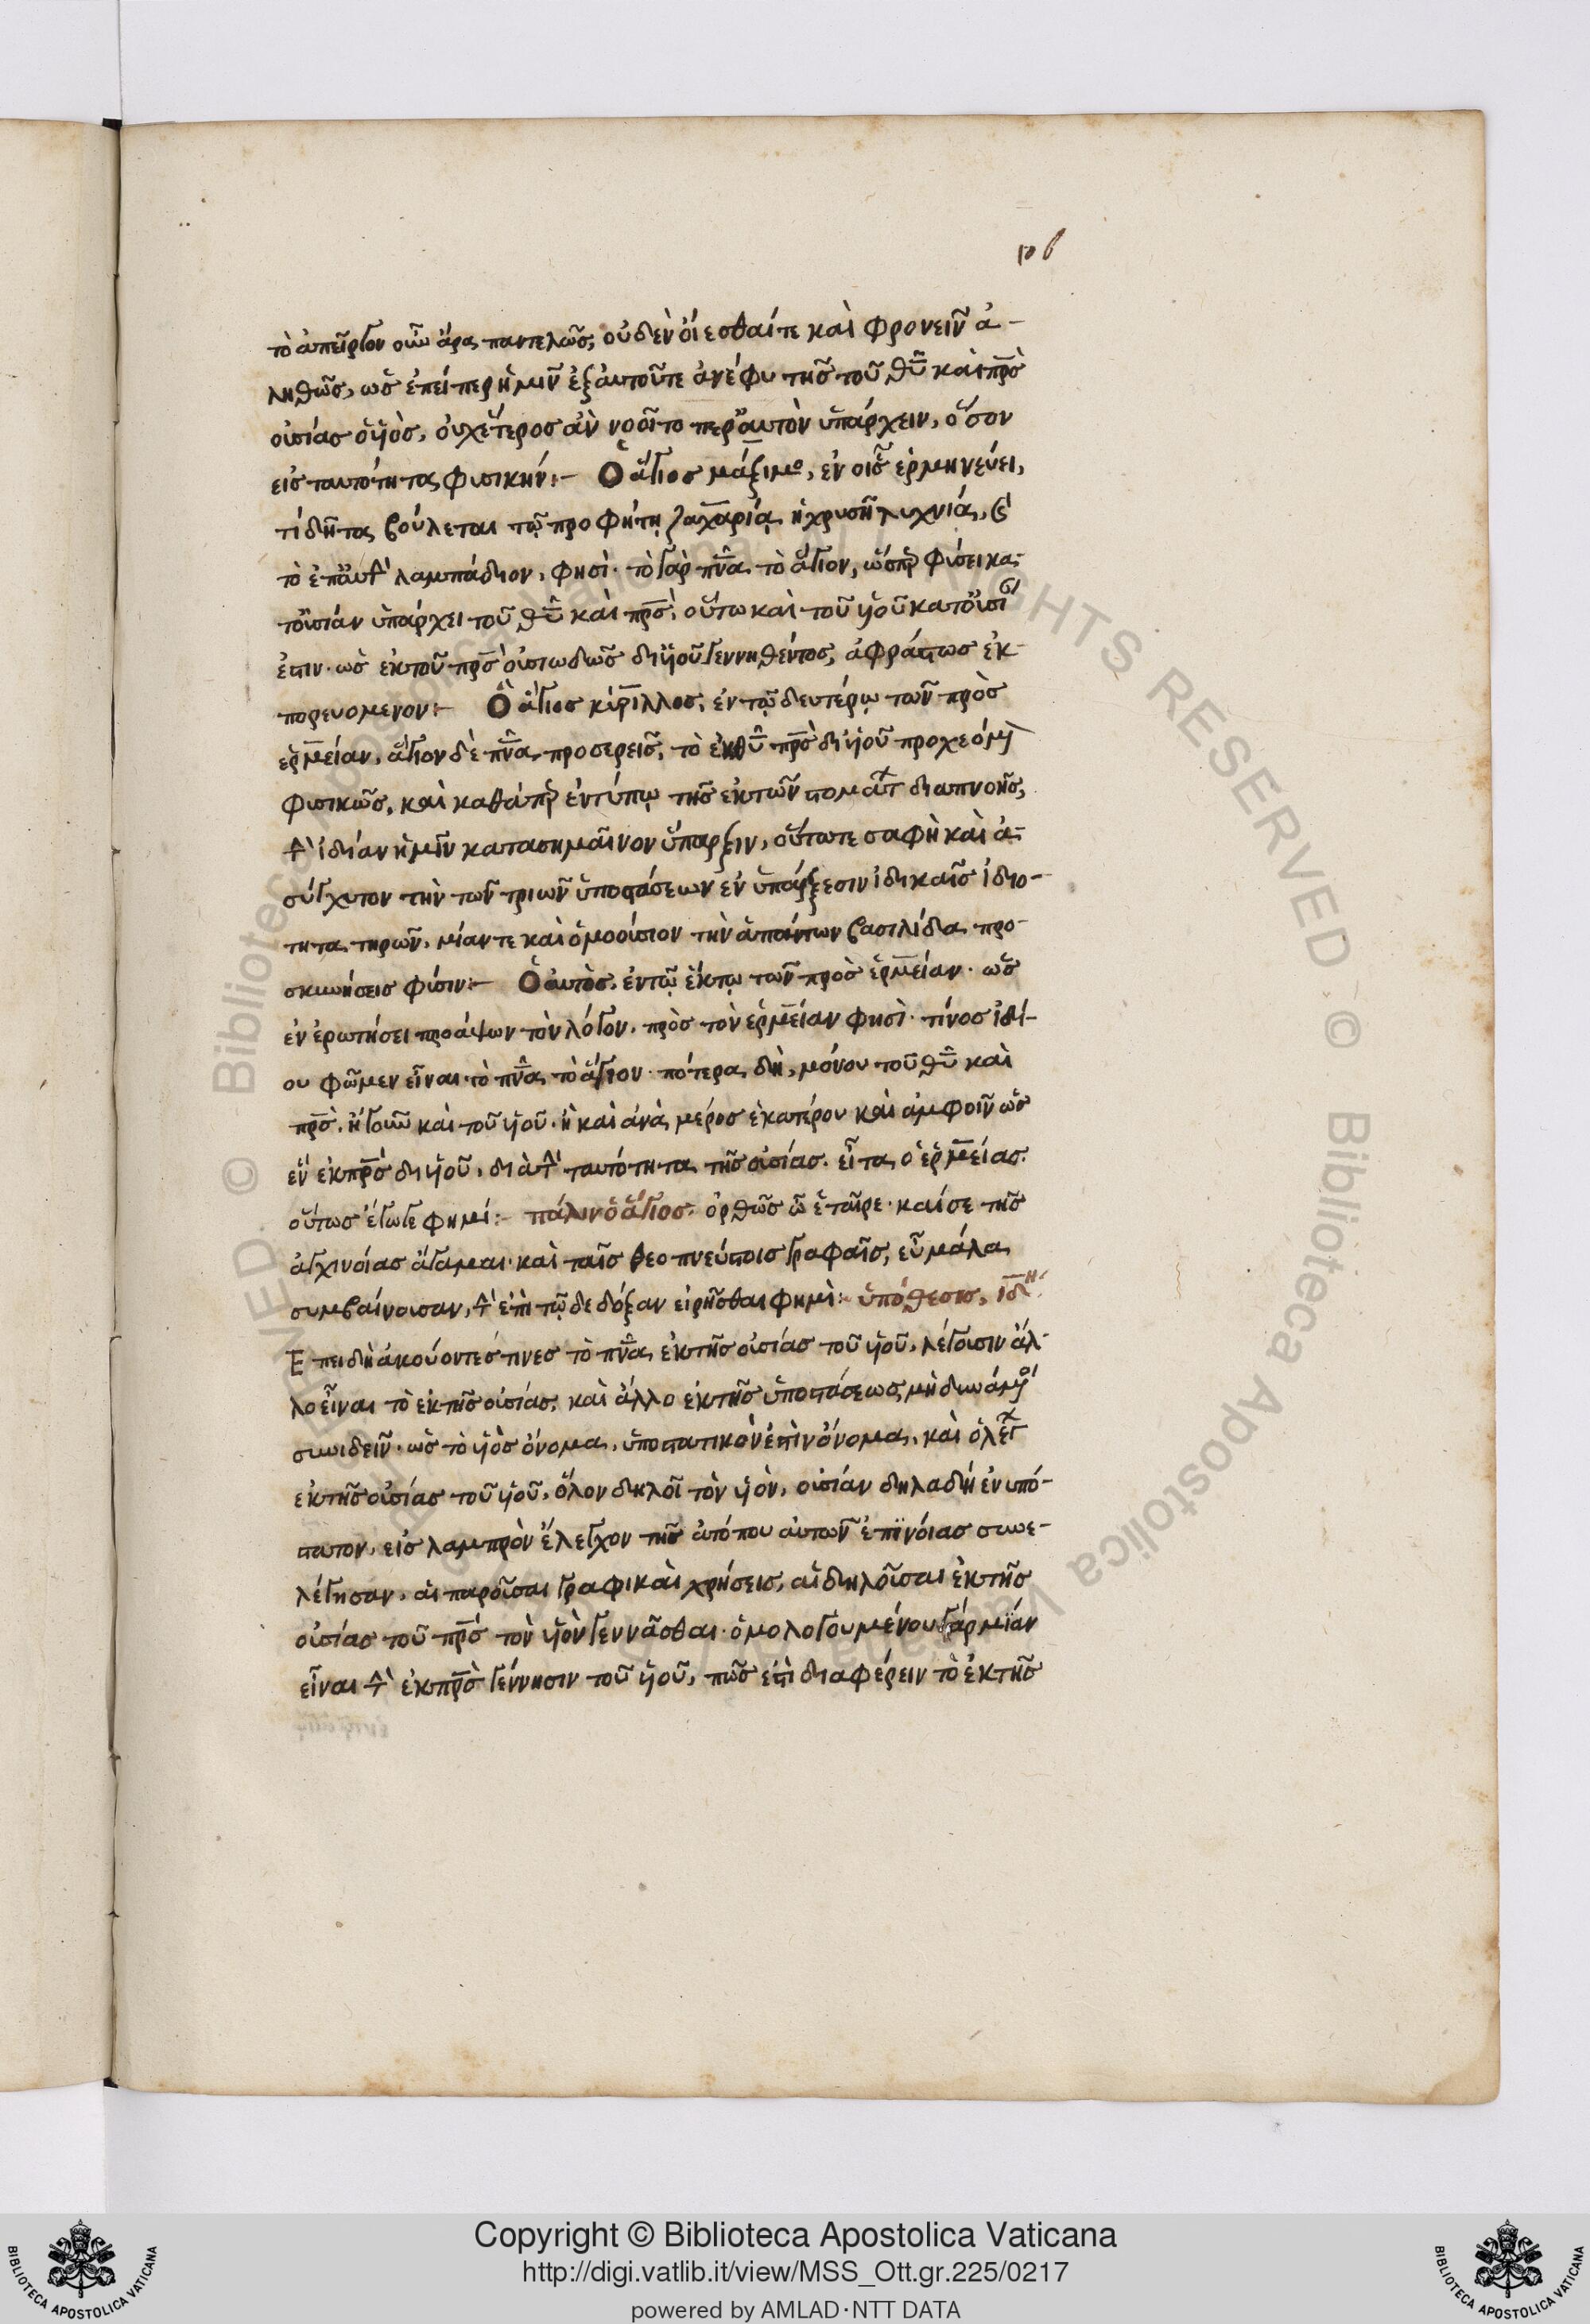 106
τὸ ἀπεῖργον οὖν ἄρα παντελῶς, οὐδὲν οἴεσθαί τε καὶ φρονεῖν ἀ-
ληθῶς, ὡς ἐπείπερ ἡμῖν ἐξ αὐτοῦ τε ἀνέφυ τῆς τοῦ θυ καὶ πρς
οὐσίας ὁ υἱὸς, οὐχ ἕτερος ἂν νοοῖτο παρ' αὐτὸν ὑπάρχειν, ὅσον
εἰς ταυτότητα φυσικήν:- Ὁ ἅγιος μάξιμο, ἐν οἷς ἑρμηνεύει,
τί δῆτα βούλεται τῷ προφήτῃ ζαχαρίᾳ ἡ χρυσῆ λυχνία, καὶ
τὸ ἐπ' αὐτὴν λαμπάδιον, φησὶ· τὸ γὰρ πνα τὸ ἅγιον, ὥσπερ φύσει κα-
τ' οὐσίαν ὑπάρχει τοῦ θυ καὶ πρς, οὕτω καὶ τοῦ υἱοῦ κατ' οὐσίαν
ἐστιν· ὡς ἐκ τοῦ πρς οὐσιωδῶς δι' υἱοῦ γεννηθέντος, ἀφράστως ἐκ-
πορευομενον:- Ὁ ἅγιος κύριλλος, ἐν τῷ δευτέρῳ τῶν πρὸς
ἑρμείαν, ἅγιον δὲ πνα προσερεῖς, τὸ ἐκ θυ πρς δι' υἱοῦ προχεόμενον
φυσικῶς, καὶ καθάπερ ἐν τύπῳ τῆς ἐκ τῶν στομάτων διαπνοῆς,
τὴν ἰδίαν ἡμῖν κατασημαῖνον ὕπαρξιν, οὕτω τε σαφῆ καὶ ἀ-
σύγχυτον τὴν τῶν τριῶν ὑποστάσεων ἐν ὑπάρξεσιν ἰδικαῖς ἰδιο-
τητα τηρῶν, μίαν τε καὶ ὁμοούσιον τὴν ἁπάντων βασιλίδα προ-
σκυνήσεις φύσιν:- Ὁ αὐτὸς, ἐν τῷ ἕκτῳ τῶν πρὸς ἑρμείαν· ὡς
ἐν ἐρωτήσει προάψων τὸν λόγον, πρὸς τὸν ἑρμείαν φησὶ· τίνος ἰδί-
ου φῶμεν εἶναι τὸ πνα τὸ ἅγιον· πότερα δὴ, μόνου τοῦ θυ καὶ
πρς, ἤγουν καὶ τοῦ υἱοῦ· ἢ καὶ ἀνὰ μέρος ἑκατέρου καὶ ἀμφοῖν ὡς
ἓν ἐκ πρς δι' υἱοῦ, διὰ τὴν ταυτότητα τῆς οὐσίας. εἶτα ὁ ἑρμείας.
οὕτως ἔγωγε φημί:- πάλιν ὁ ἅγιος· ὀρθῶς ὦ ἑταῖρε· καί σε τῆς
ἀγχινοίας ἄγαμαι· καὶ ταῖς θεοπνεύστοις γραφαῖς, εὖ μάλα
συμβαίνουσαν, τὴν ἐπὶ τῷδε δόξαν εἰρῆσθαι φημὶ:- ὑπόθεσις, ιδη
Ἐπειδὴ ἀκούοντές τινες τὸ πνα ἐκ τῆς οὐσίας τοῦ υἱοῦ, λέγουσιν ἄλ-
λο εἶναι τὸ ἐκ τῆς οὐσίας, καὶ ἄλλο ἐκ τῆς ὑποστάσεως, μὴ δυνάμενοι
συνιδεῖν· ὡς τὸ υἱὸς ὄνομα, ὑποστατικὸν ἐστὶν ὄνομα, καὶ ὁ λέγων
ἐκ τῆς οὐσίας τοῦ υἱοῦ, ὅλον δηλοῖ τὸν υἱὸν, οὐσίαν δηλαδὴ ἐνυπό-
στατον, εἰς λαμπρὸν ἔλεγχον τῆς ἀτόπου αὐτῶν ἐπινοίας συνε-
λέγησαν, αἱ παροῦσαι γραφικαὶ χρήσεις, αἳ δηλοῦσαι ἐκ τῆς
οὐσίας τοῦ πρς τὸν υἱὸν γεννᾶσθαι· ὁμολογουμένου γάρ μίαν
εἶναι τὴν ἐκ πρς γέννησιν τοῦ υἱοῦ, πῶς ἐστὶ διαφέρειν τὸ ἐκ τῆς
Copyright © Biblioteca Apostolica Vaticana
http://digi.vatlib.it/view/MSS_Ott.gr.225/0217
powered by AMLAD·NTT DATA
BIBLIOTECA APOSTOLICA VATICANA
BIBLIOTECA APOSTOLICA VATICANA